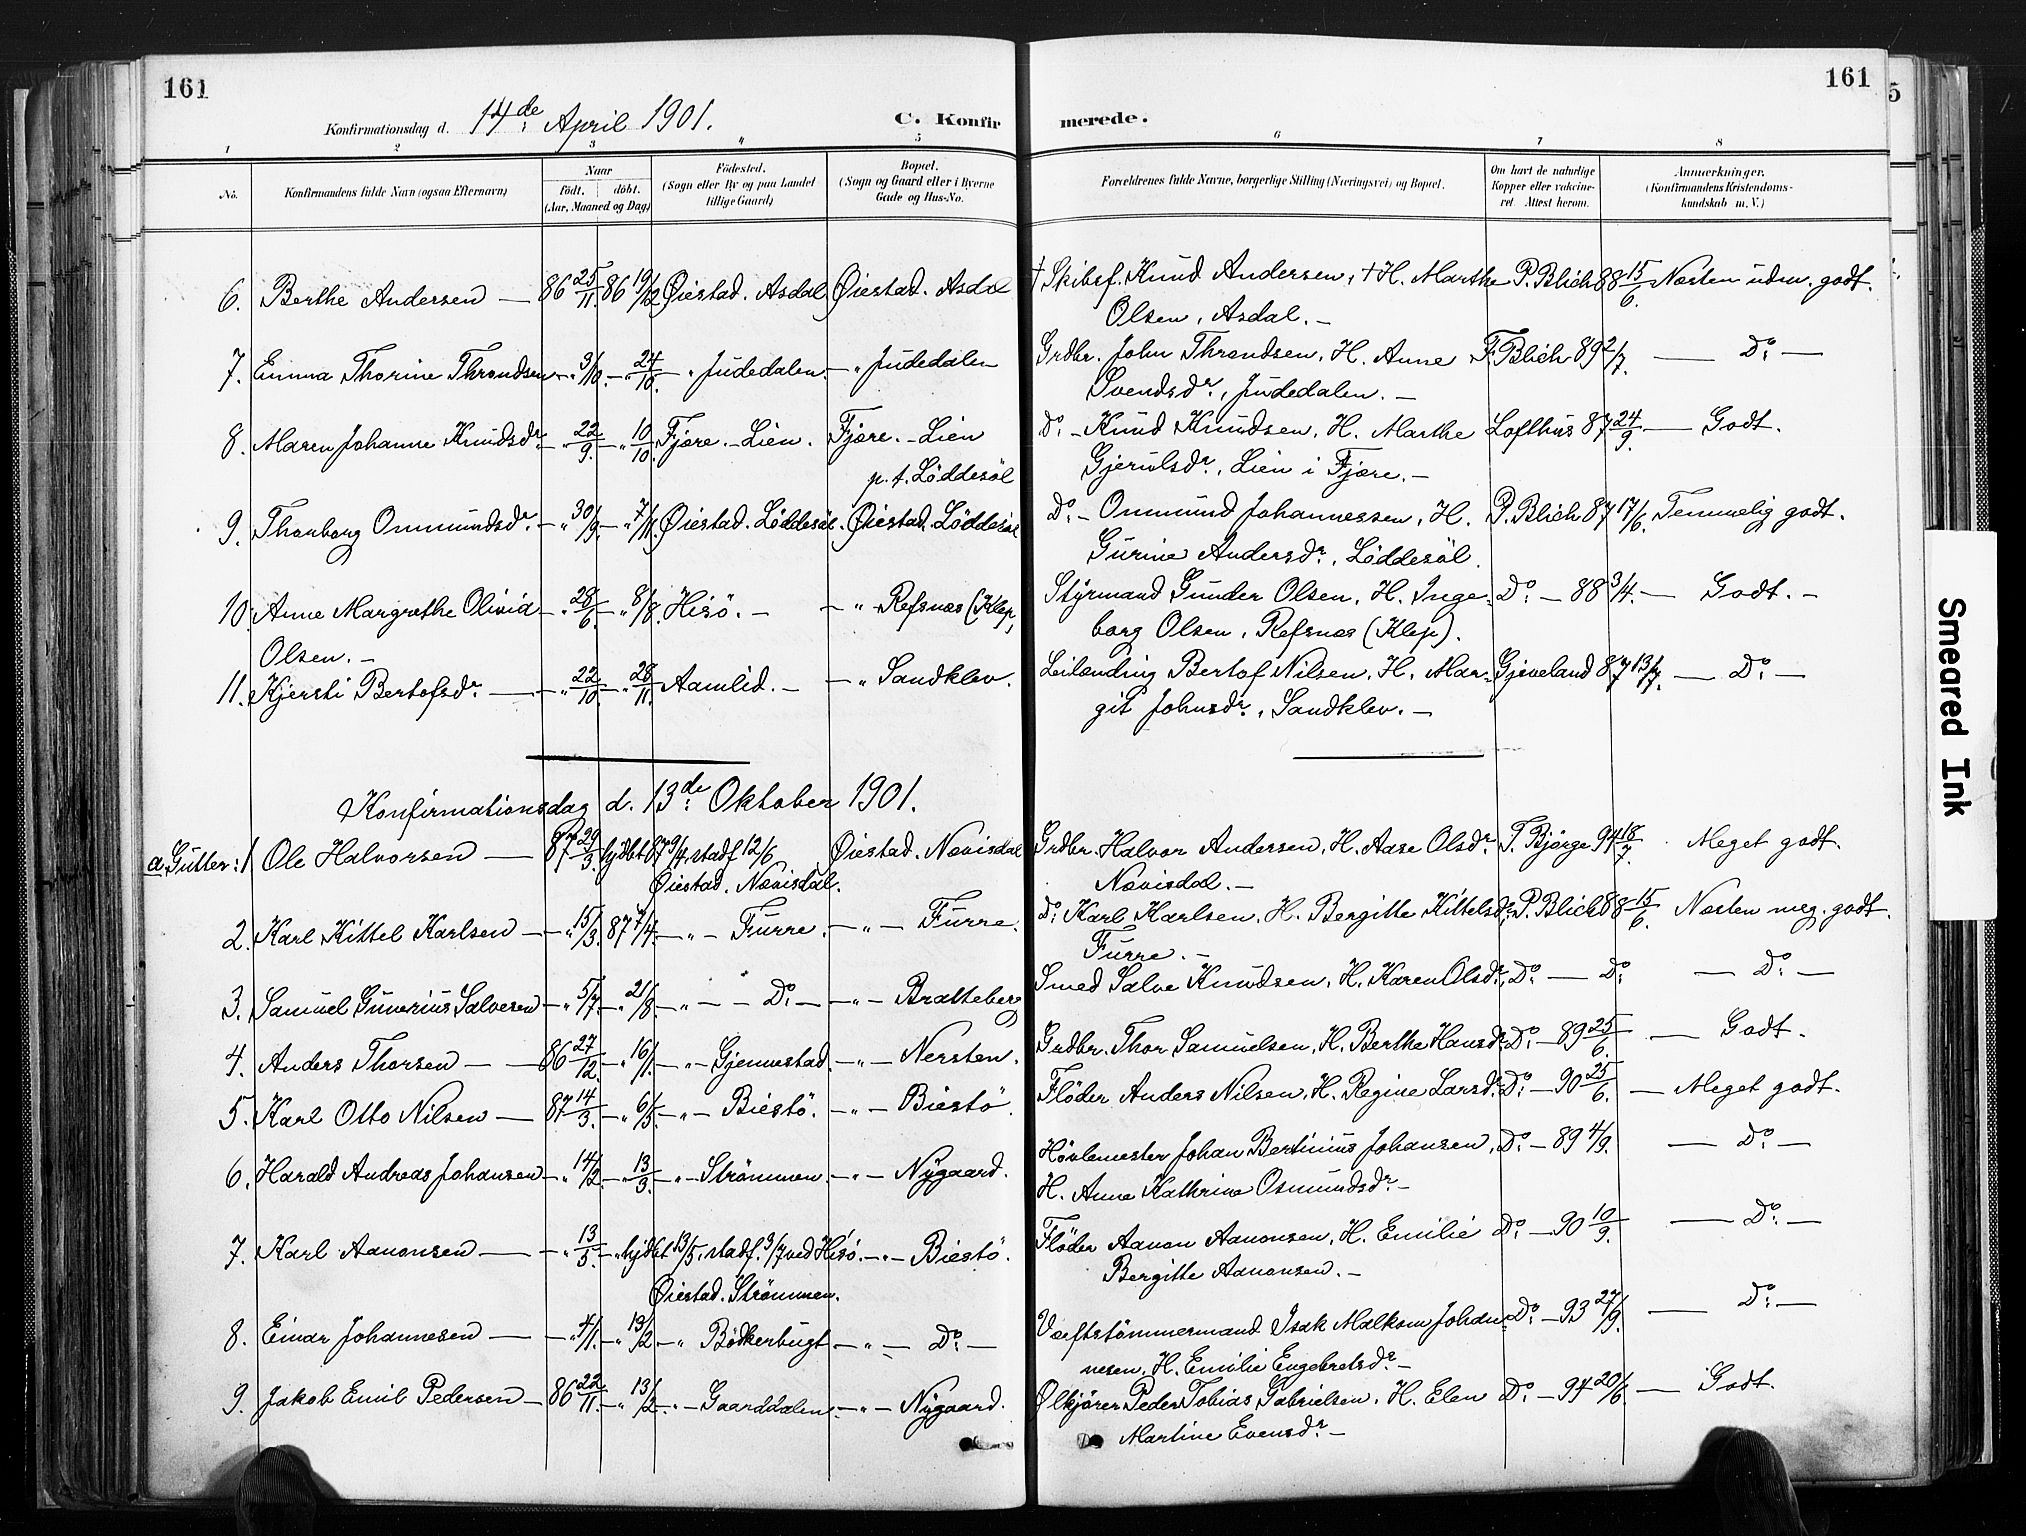 161
161
5
Konfirmationsdag d. 14de April 1901.
C. Konfirmerede.
1 2 3 4 5 6 7 8
No.
Konfirmandens fulde Navn (ogsaa Efternavn)
Naar
födt. döbt.
(Aar, Maaned og Dag)
Födested.
(Sogn eller By og paa Landet
tillige Gaard)
Bopæl.
(Sogn og Gaard eller i Byerne
Gade og Hus-No.
Forældrenes fulde Navne, borgerlige Stilling (Næringsvei) og Bopæl.
Om havt de naturlige
Kopper eller vakcine-
ret. Attest herom.
Anmærkninger.
(Konfirmandens Kristendoms-
kundskab m. V.)
6. Berthe Andersen — 86 25/11. 86 19/12 Øiestad. Asdal Øiestad. Asdal † Skibsf. Knud Andersen, † H. Marthe P. Blich 88 15/6. Næsten udm. godt.
Olsen, Asdal. —
7. Emma Thorine Throndsen — " 3/10. — " 24/10. — " Judedalen. — " Judedalen Grdbr. John Throndsen, H. Anne F. Blich 89 2/7. — Do: —
Svendsdr., Judedalen. —
8. Maren Johanne Knudsdr. — " 22/9. — " 10/10. Fjære. — Lien. Fjære. — Lien Do: — Knud Knudsen, H. Marthe Lofthus 87 24/9. — Godt.
p. t. Løddesøl Gjerulsdr., Lien i Fjære. —
9. Thonborg Ommundsdr. — " 30/9. — " 7/11. Øiestad. Løddesøl. Øiestad. Løddesøl Do: — Ommund Johannessen, H. P. Blich 87 17/6. Temmelig godt.
Gurine Andersdr., Løddesøl.
10. Anne Margrethe Olivid — " 28/6. — " 8/8. Hisö. — — " Refsnæs (Klep) Styrmand Gunder Olsen, H. Inge- Do: — 88 3/4. — Godt. —
Olsen. — borg Olsen, Refsnæs (Klep).
11. Kjersti Bertofsdr. — — " 22/10. — " 28/11. Aamlid. — — " Sandklev. Leilænding Bertof Nilsen, H. Mar- Gjeveland 87 13/7. — Do: —
git Johnsdr., Sandklev. —
Konfirmationsdag d. 13de: Oktober 1901.
a. Gutter: 1 Ole Halvorsen — 87 29/3. hjdbt 87 9/4, stadf 12/6 Øiestad. Nævisdal Grdbr. Halvor Andersen, H. Aase Olsdr. T. Bjørge 94 18/7. Meget godt.
Øiestad. Nævisdal. Nævisdal. —
2. Karl Kittel Karlsen — " 15/3. 87 7/4. — " — Furre. — " — Furre. Do: Karl Karlsen, H. Bergitte Kittelsdr., P. Blich 88 15/6. Næsten meg. godt.
Furre. —
3. Samuel Gunerius Salvesen — " 5/7. — " 21/8 — " — — Do: — — " — Bratteberg Smed Salve Knudsen, H. Karen Olsdr., Do: — Do: — Do: —
4. Anders Thorsen — — 86 27/12. — " 16/1. — " — Gjennestad. — " — Nersten. Grdbr. Thor Samuelsen, H. Berthe Hansdr. Do: — 89 25/6. — Godt.
5. Karl Otto Nilsen — 87 14/3. — " 6/5. — " — Biestö. — " — Biestö. Fløder Anders Nilsen, H. Regine Larsdr. Do: — 90 25/6. — Meget godt.
6. Harald Andreas Johansen — " 14/2. — " 13/3. — " — Strömmen. — " — Nygaard. Høvlemester Johan Bertinius Johansen, Do: — 89 4/9. — Do: —
H. Anne Kathrine Osmundsdr. —
7. Karl Aanonsen — — " 13/5. — " hjdbt 13/5, stadf. 3/7 ved Hisö. — " — Biestö. Fløder Aanon Aanonsen, H. Emilie Do: — 90 10/9. — Do: —
Øiestad. Strömmen. Bergitte Aanonsen. —
8. Einar Johannesen — — " 4/1. — " 13/2 — " Bödkerbugt — " — Do: — Værftstömmermand Isak Malkom Johan- Do: — 93 27/9. — Do: —
nesen, H. Emilie Engebretsdr. —
9. Jakob Emil Pedersen — 86 22/11. — " 13/2. — " — Gaarddalen. — " — Nygaard. Ølkjører Peder Tobias Gabrielsen, H. Elen Do: — 94 20/6. — Godt.
Martine Evensdr. —
Smeared Ink